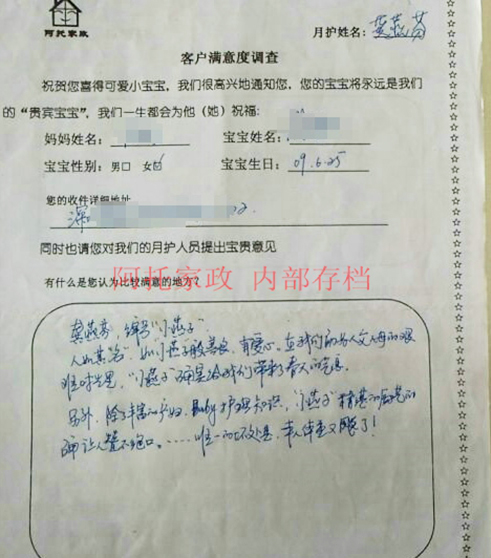 阿托家政
月护姓名：龚燕芬
客户满意度调查
祝贺您喜得可爱小宝宝，我们很高兴地通知您，您的宝宝将永远是我们
的“贵宾宝宝”，我们一生都会为他（她）祝福：
妈妈姓名： 宝宝姓名：
宝宝性别： 男□ 女☑ 宝宝生日： 09.6.25
您的收件详细地址
深
同时也请您对我们的月护人员提出宝贵意见
有什么是您认为比较满意的地方？
阿托家政 内部存档
龚燕芬，绰号“小燕子”
人如其名，如小燕子般善良，有爱心，在我们初为人父母的艰
难时光里，“小燕子”确是给我们带来了春天的气息。
另外，除了丰富的产妇、Baby护理知识，“小燕子”精湛的厨艺
确让人赞不绝口。……唯一的坏处是，本人体重又飙了！